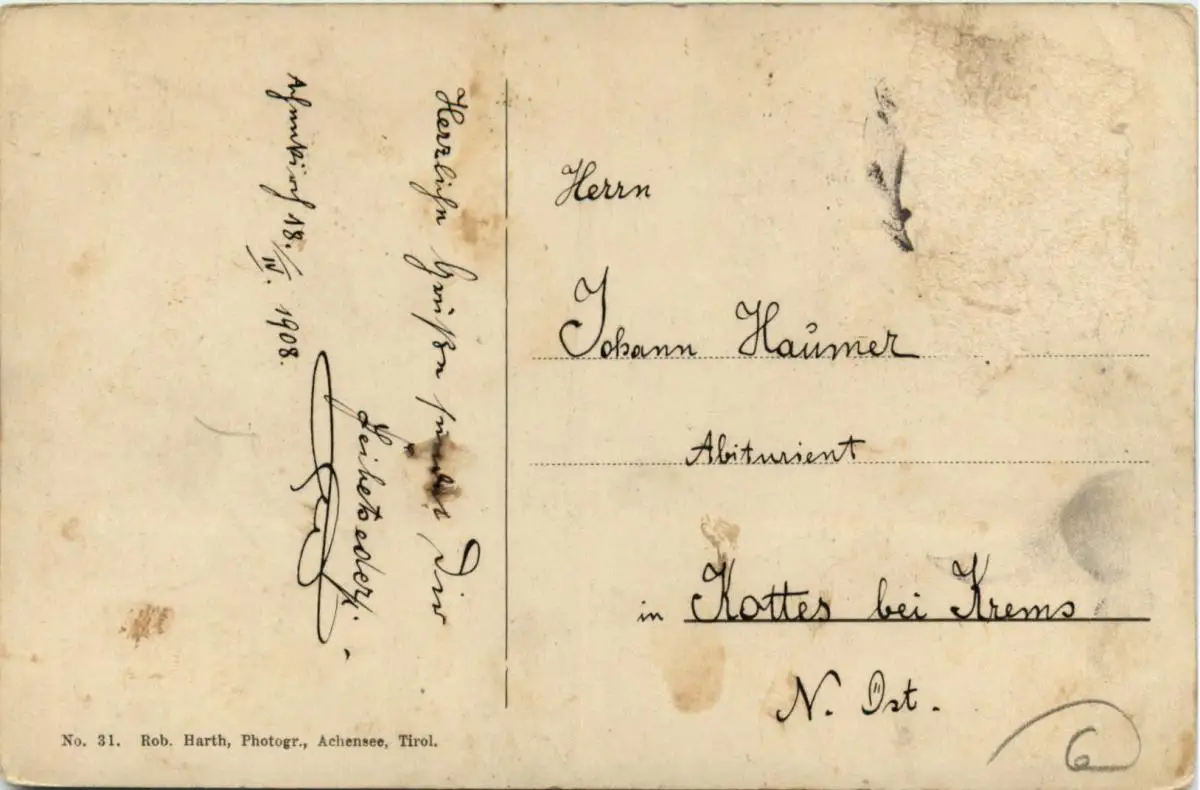 Achenkirch 18./IV. 1908.
Herzliche Grüße sendet Dir
Herrn
Johann Haumer
Abiturient
in Kottes bei Krems
N. Öst.
No. 31. Rob. Harth, Photogr., Achensee, Tirol.
6